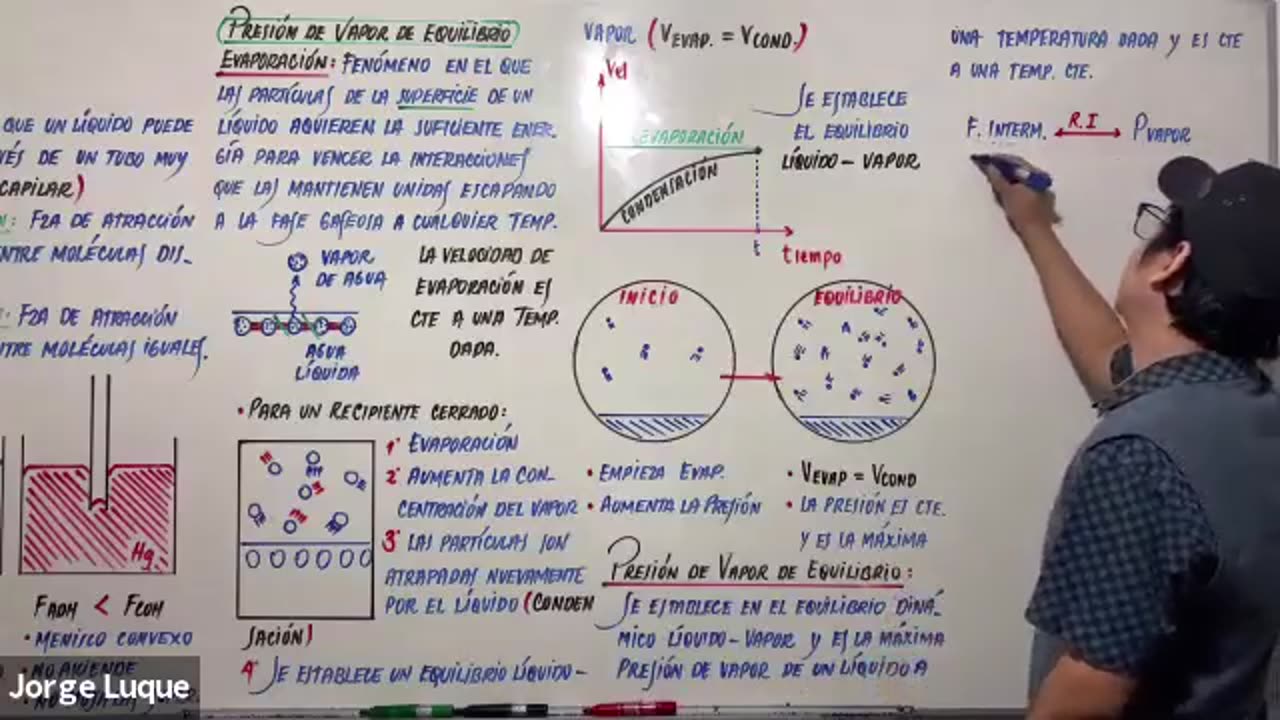 QUE UN LÍQUIDO PUEDE
VÉS DE UN TUBO MUY
CAPILAR)
N: FZA DE ATRACCIÓN
NTRE MOLÉCULAS DIS_
: FZA DE ATRACCIÓN
NTRE MOLÉCULAS IGUALES.
Hg
FADH < FCOH
• MENISCO CONVEXO
• NO ASCIENDE
Jorge Luque
PRESIÓN DE VAPOR DE EQUILIBRIO
EVAPORACIÓN: FENÓMENO EN EL QUE
LAS PARTÍCULAS DE LA SUPERFICIE DE UN
LÍQUIDO AQUIEREN LA SUFICIENTE ENER_
GÍA PARA VENCER LA INTERACCIONES
QUE LAS MANTIENEN UNIDAS ESCAPANDO
A LA FASE GASEOSA A CUALQUIER TEMP.
VAPOR
DE AGUA
AGUA
LÍQUIDA
LA VELOCIDAD DE
EVAPORACIÓN ES
CTE A UNA TEMP.
DADA.
• PARA UN RECIPIENTE CERRADO:
1° EVAPORACIÓN
2° AUMENTA LA CON_
CENTRACIÓN DEL VAPOR
3° LAS PARTÍCULAS SON
ATRAPADAS NUEVAMENTE
POR EL LÍQUIDO (CONDEN
SACIÓN)
4° SE ESTABLECE UN EQUILIBRIO LÍQUIDO-
VAPOR (VEVAP. = VCOND.)
Vel
EVAPORACIÓN
CONDENSACIÓN
t
tiempo
SE ESTABLECE
EL EQUILIBRIO
LÍQUIDO - VAPOR
INICIO
EQUILIBRIO
• EMPIEZA EVAP.
• AUMENTA LA PRESIÓN
• VEVAP = VCOND
• LA PRESIÓN ES CTE.
Y ES LA MÁXIMA
PRESIÓN DE VAPOR DE EQUILIBRIO:
SE ESTABLECE EN EL EQUILIBRIO DINÁ-
MICO LÍQUIDO-VAPOR Y ES LA MÁXIMA
PRESIÓN DE VAPOR DE UN LÍQUIDO A
UNA TEMPERATURA DADA Y ES CTE
A UNA TEMP. CTE.
F. INTERM. R.I PVAPOR